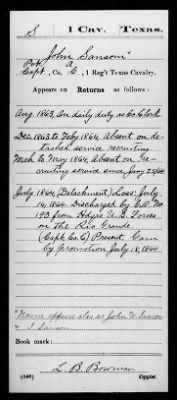 S 1 Cav. Texas.
John Sansom
Pvt
Capt., Co. C, 1 Reg't Texas Cavalry.
Appears on Returns as follows:
Aug. 1863, On daily duty as Co. Clerk
Dec. 1863 to Feby 1864, Absent on de-
tached service recruiting.
Mch to May 1864, Absent on re-
cruiting service since Jany
July 1864 (Detachment) Loss: July
14, 1864. Discharged by S.O. No
193 from Hdqrs U.S. Forces
on the Rio Grande.
(Capt. Co. C) Present. Gain
by promotion July 18, 1864.
*Name appears also as John W. Sansom
& J. Sansom
Book mark:
L. B. Bowman
(546) Copyist.